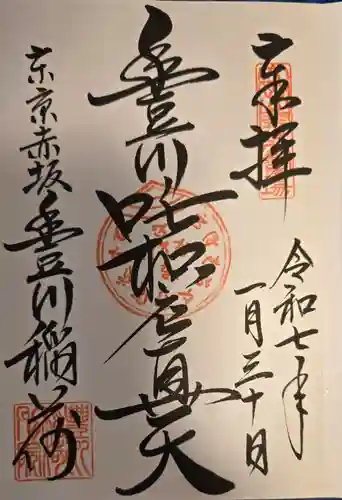 奉拝
令和七年
一月三十日
豊川吒枳尼眞天
東京赤坂豊川稲荷